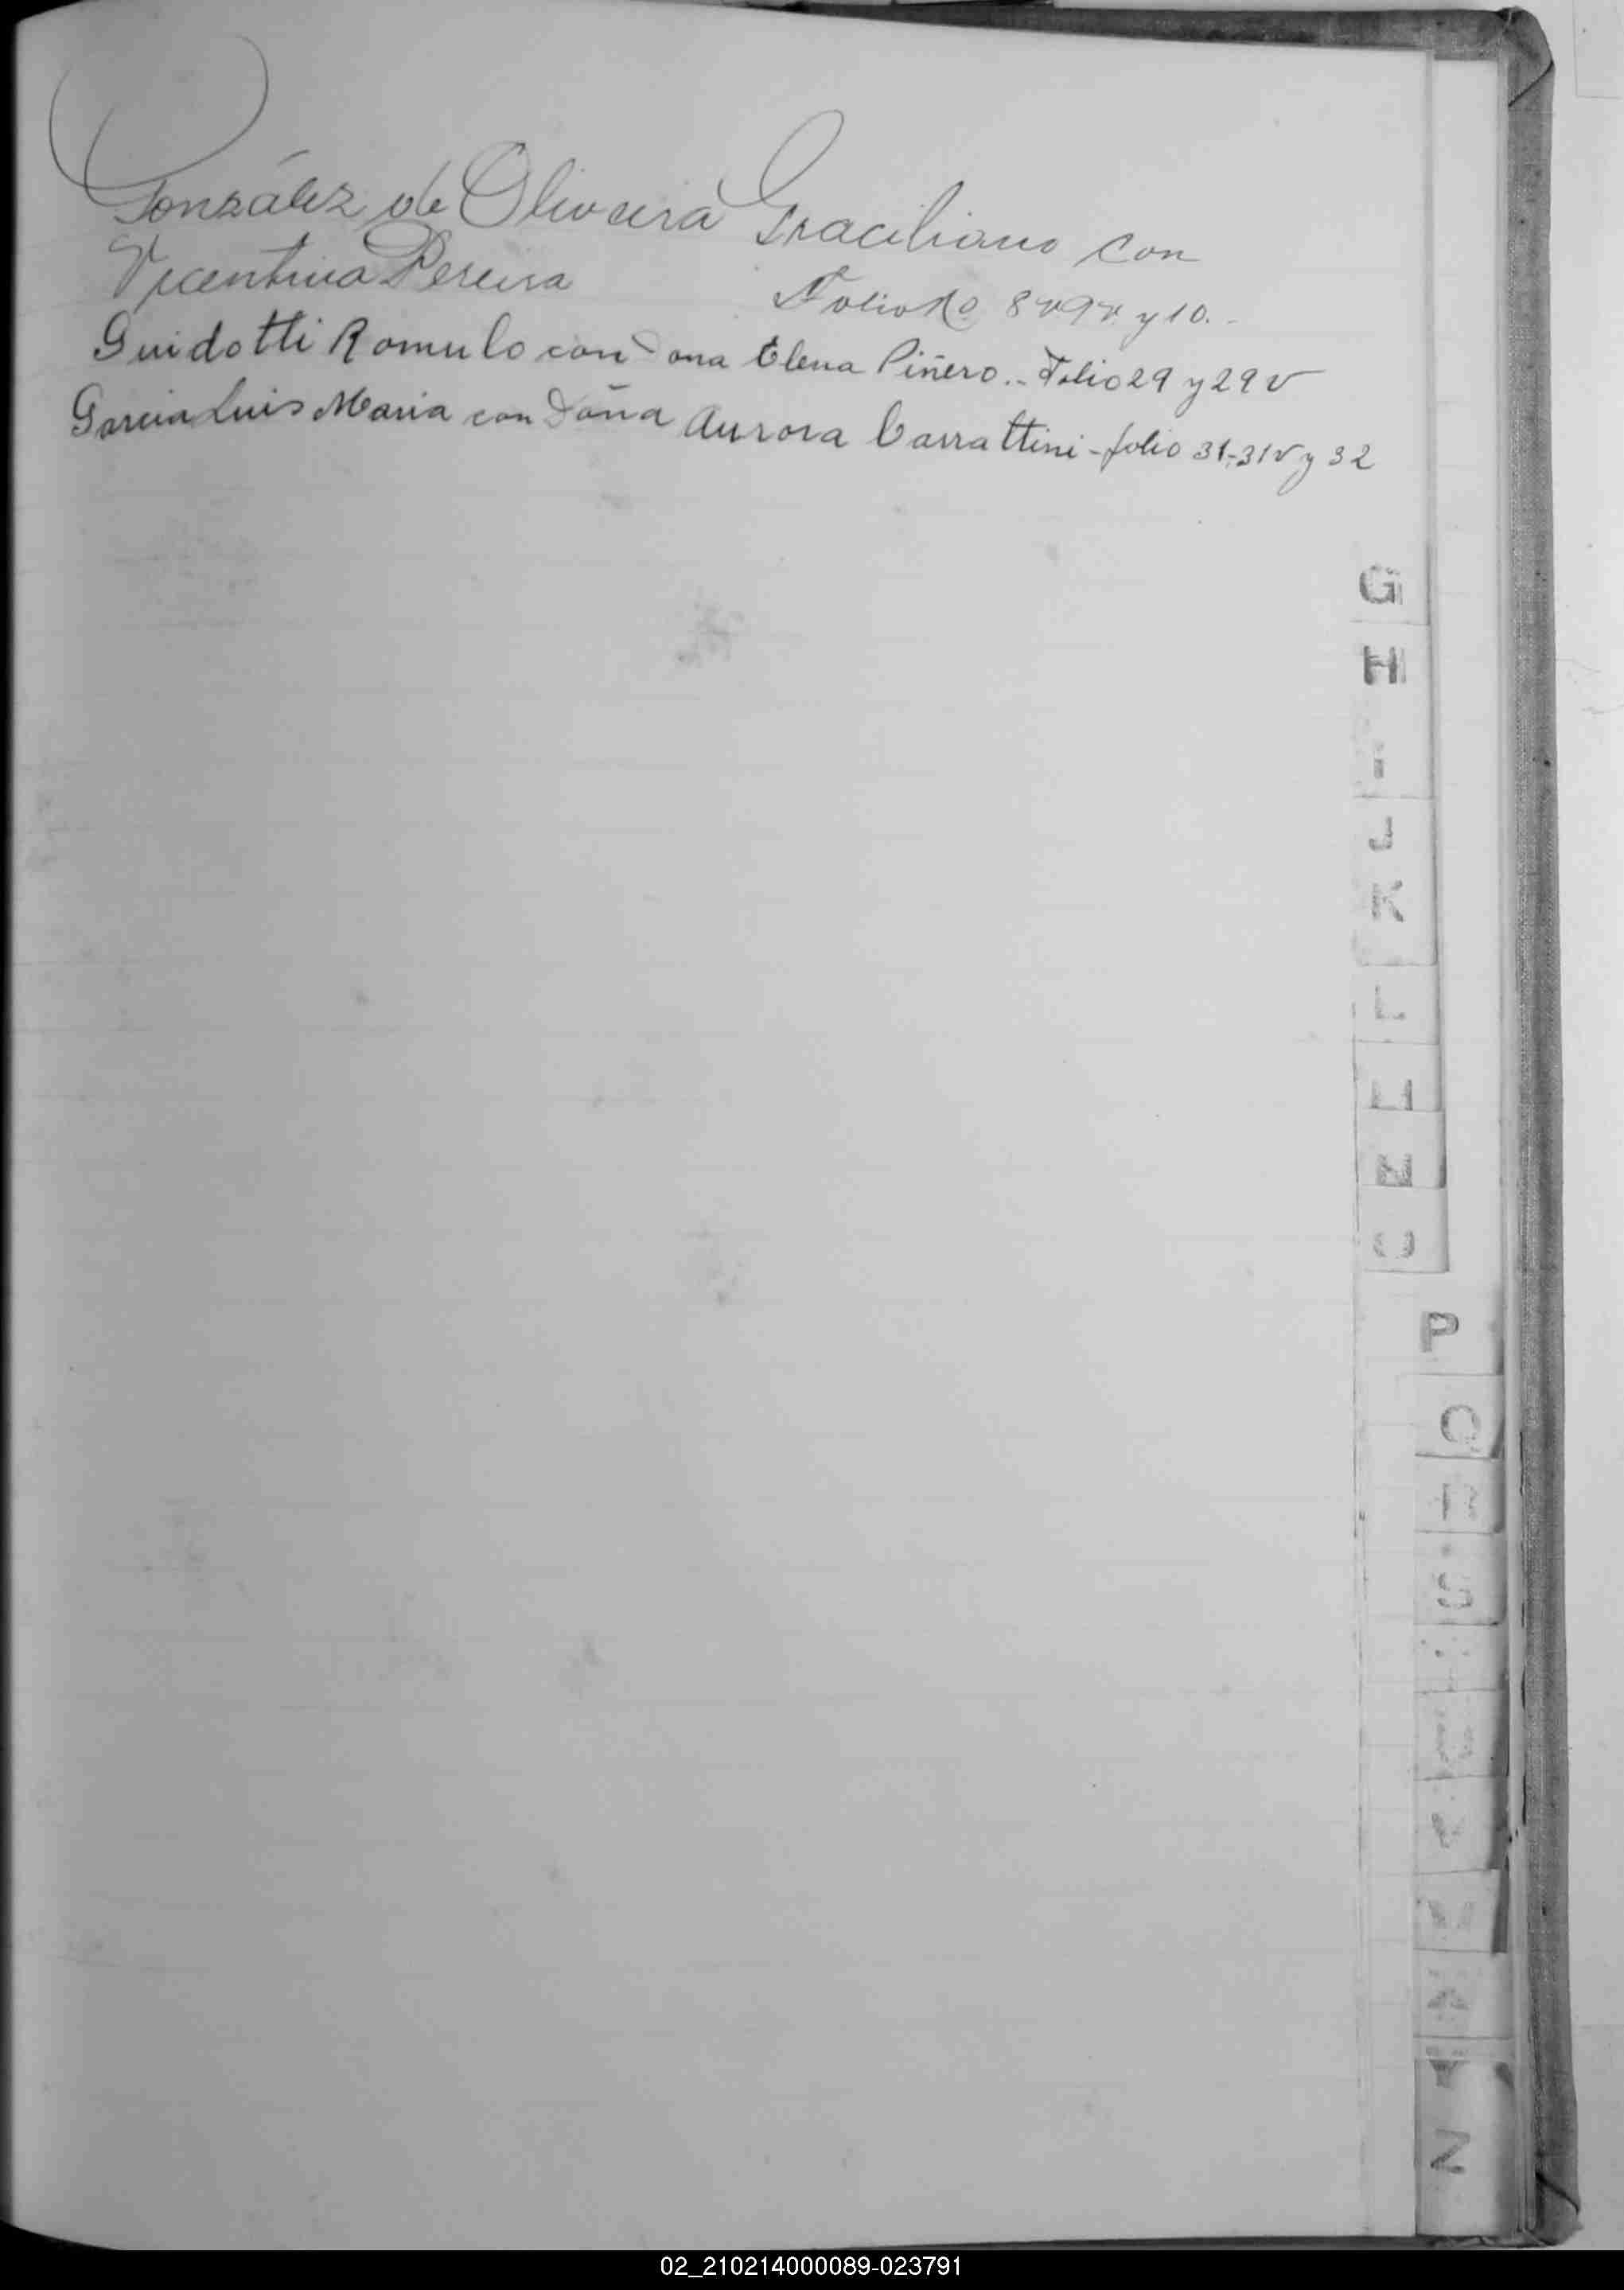 González de Oliveira Graciliano con
Vicentina Pereira Folio No 8v 9v y 10.-
Guidotti Romulo con Dona Elena Piñero.- Folio 29 y 29 v
Garcia Luis Maria con Doña Aurora Carrattini - folio 31-31v y 32
G
H
J
K
L
P
S
N
02_210214000089-023791